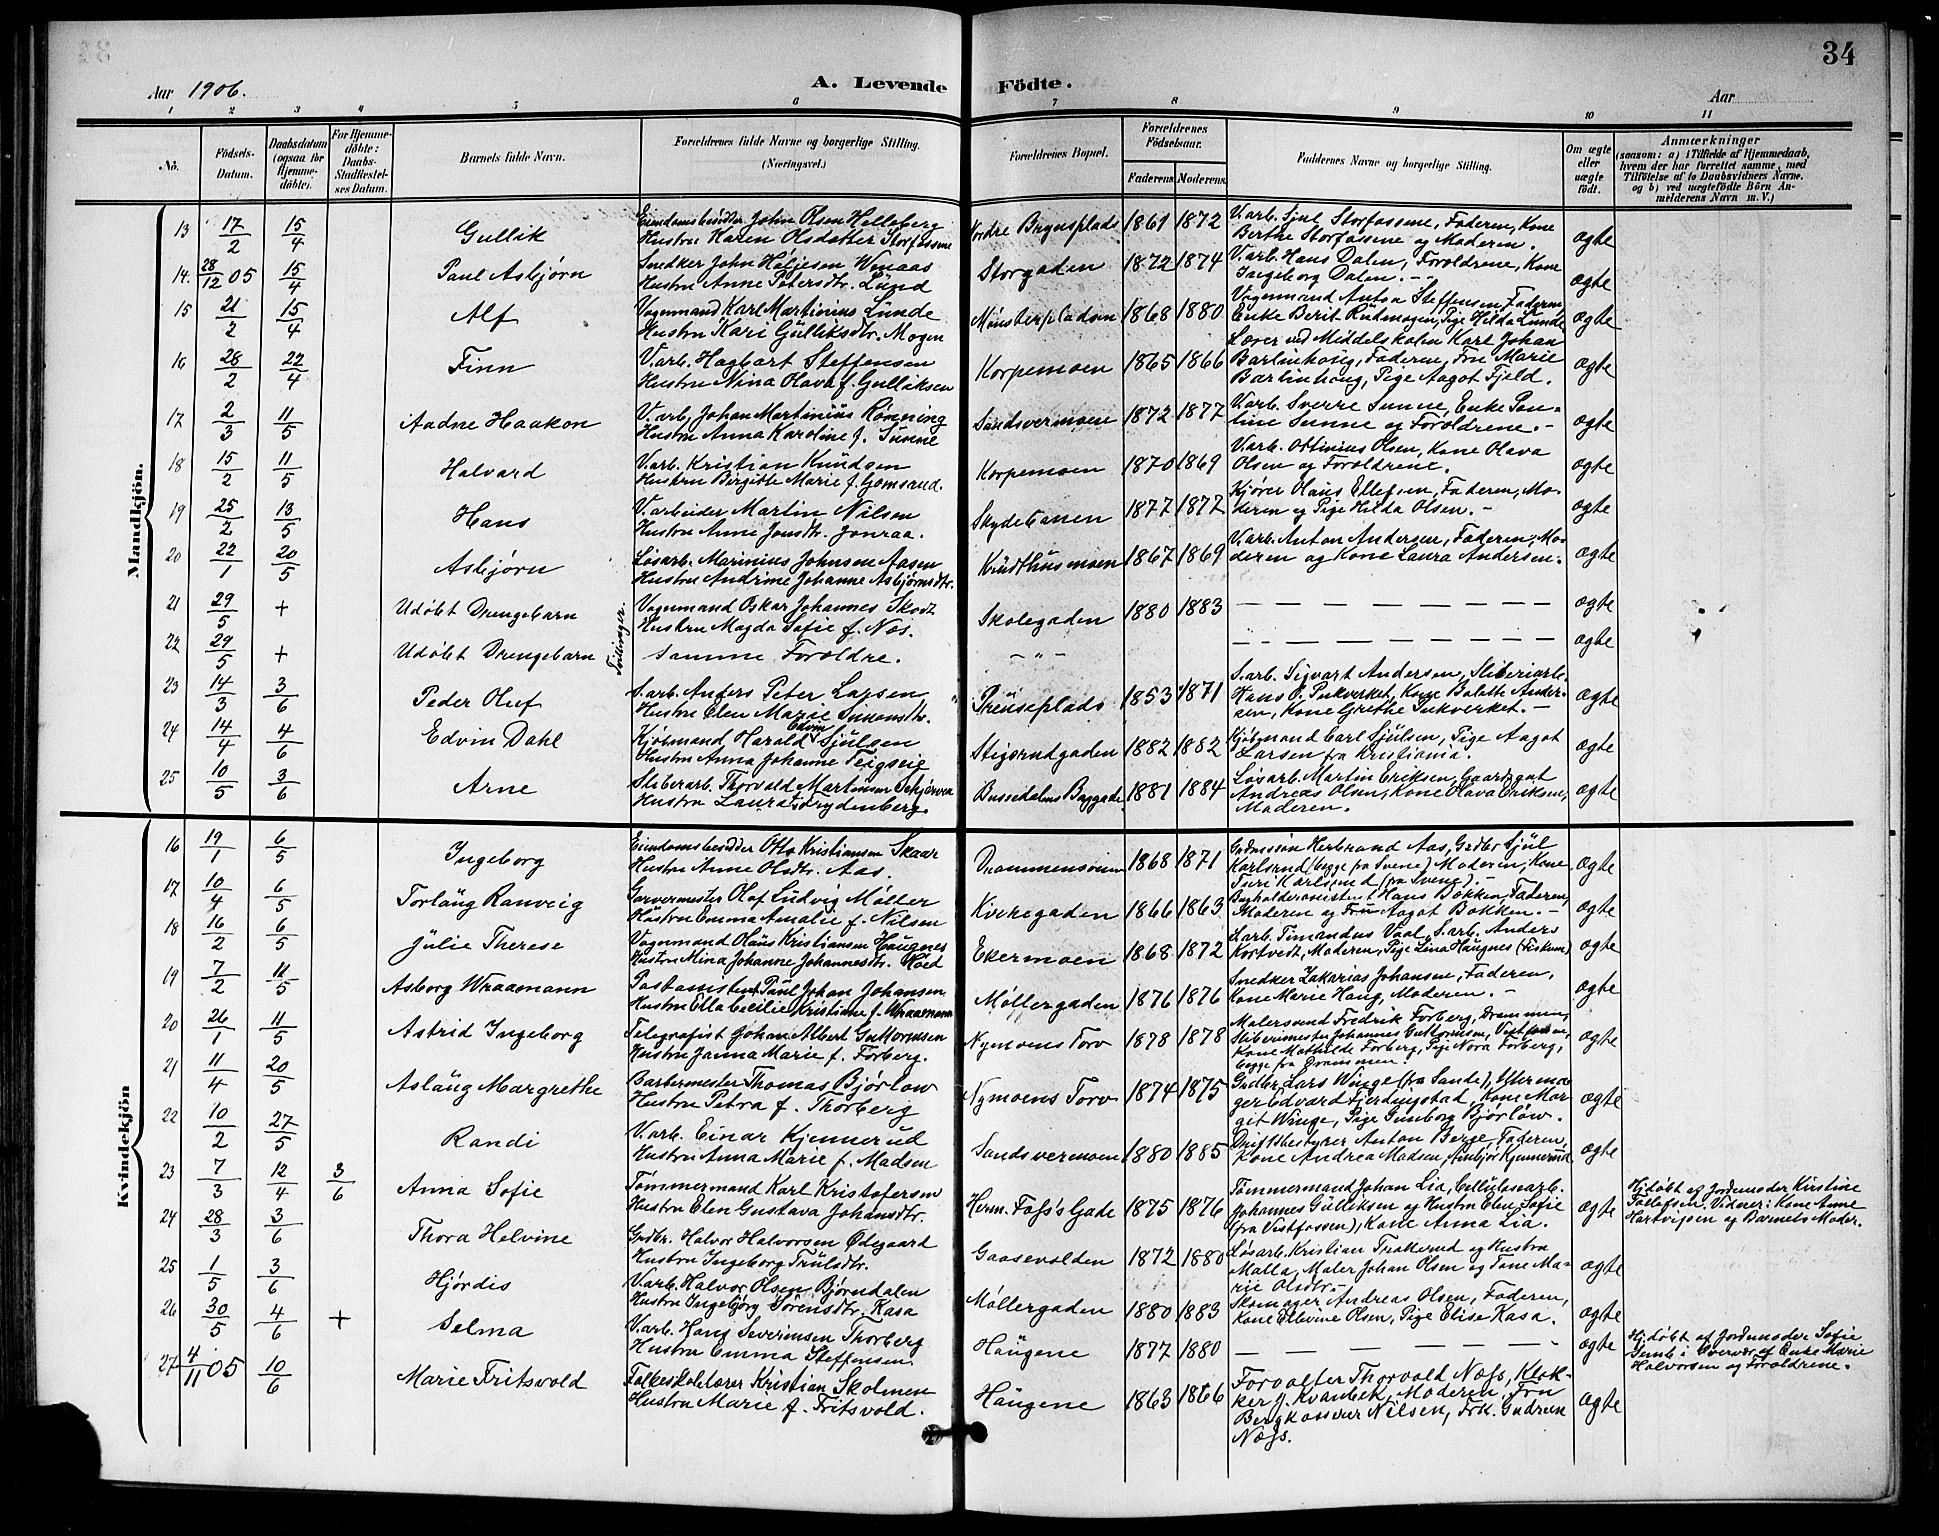 34
Aar 1906.
A. Levende Födte.
Aar
1 2 3 4 5 6 7 8 9 10 11
No.
Födsels-Datum.
Daabsdatum (ogsaa for Hjemme-döbte).
For Hjemme-döbte: Daabs-Stadfæstel-ses Datum.
Barnets fulde Navn.
Forældrenes fulde Navne og borgerlige Stilling. (Næringsvei.)
Forældrenes Bopæl.
Forældrenes Födselsaar.
Faderens. Moderens.
Faddernes Navne og borgerlige Stilling.
Om ægte eller uægte födt.
Anmærkninger (saasom: a) i Tilfælde af Hjemmedaab, hvem der har forrettet samme, med Tilföielse af to Daabsvidners Navne, og b) ved uægtefödte Börn An-melderens Navn m. V.)
Mandkjön.
13 17/2 15/4 Gullik Eiendomsbesidder John Olsen Helleberg
Hustru Karen Olsdatter Storfossene Nordre Brynsplads 1861 1872 V.arb. Sjul Storfossene, Faderen, Kone
Berthe Storfossene og Moderen. ægte
14. 28/12 05 15/4 Paul Asbjørn Snedker John Heljesen Wenaas
Hustru Anne Petersdtr. Lund Storgaden 1872 1874 V.arb. Hans Dalen, Forældrene, Kone
Ingeborg Dalen. ægte
15 21/2 15/4 Alf Vognmand Karl Martinius Lunde
Hustru Kari Gulliksdtr. Mogen Mønsterpladsen 1868 1880 Vognmand Anton Steffensen, Faderen,
Enke Berit Rudmogen, Pige Hilda Lunde ægte
16 28/2 22/4 Finn V.arb. Hagbart Steffensen
Hustru Nina Olava f. Gulliksen Korpemoen 1865 1866 Lærer ved Middelskolen Karl Johan
Barlinhaug, Faderen, Fru Marie
Barlinhaug, Pige Aagot Fjeld. ægte
17 2/3 11/5 Aadne Haakon V.arb. Johan Martinius Rønning
Hustru Anna Karoline f. Sunne Sandsvermoen 1872 1877 V.arb. Sverre Sunne, Enke Pau-
line Sunne og Forældrene. ægte
18 15/2 11/5 Halvard V.arb. Kristian Knudsen
Hustru Bergitte Marie f. Gomsrud. Korpemoen 1870 1869 V.arb. Ottinius Olsen, Kone Olava
Olsen og Forældrene. ægte
19 25/2 13/5 Hans V.arbeider Martin Nilsen
Hustru Anne Jonsdtr. Jonraa. Skydebanen 1877 1877 Kjører Hans Ellefsen, Faderen, Mo-
deren og Pige Hilda Olsen. ægte
20 22/1 20/5 Asbjørn Løsarb. Marinius Johnsen Aasen
Hustru Andrine Johanne Asbjørnsdtr. Krudthusmoen 1867 1869 V.arb. Anton Andersen, Faderen, Mo-
deren og Kone Laura Andersen. ægte
21 29/5 + Udøbt Drengebarn Tvillinger. Vognmand Oskar Johannes Skodt
Hustru Magda Sofie f. Næs. Skolegaden 1880 1883 — — — — — — — ægte
22 29/5 + Udøbt Drengebarn samme Forældre. — " — — — — — — — — ægte
23 14/3 3/6 Peder Oluf S.arb. Anders Peter Larsen
Hustru Elen Marie Simonsdtr. Preuseplads 1853 1871 S.arb. Sigvart Andersen, Sliberiarb.
Hans P. Pukverket, Kone Bolette Ander-
sen, Kone Grethe Pukverket. ægte
24 14/4 4/6 Edvin Dahl Kjøbmand Harald Edvin Sjulsen
Hustru Anna Johanne Teigseie Stigerudgaden 1882 1882 Kjøbmand Carl Sjulsen, Pige Aagot
Larsen fra Kristiania. ægte
25 10/5 3/6 Arne Sliberarb. Thorvald Martinsen Schjørven
Hustru Laura Strydenberg. Bussedalens Baggade 1881 1884 Løsarb. Martin Eriksen, Gaardsgut
Andreas Olsen, Kone Olava Eriksen,
Moderen. ægte
Kvindekjön
16 19/1 6/5 Ingeborg Eiendomsbesidder Otto Kristiansen Skaar
Hustru Anne Olsdtr. Aas. Drammensveien 1868 1871 Grdmssøn Herbrand Aas, Grdbr. Sjul
Karlsrud (begge fra Svene) Moderen, Kone
Turi Karlsrud (fra Svene). ægte
17 10/4 6/5 Torlaug Ranveig Garvermester Olaf Ludvig Møller
Hustru Emma Amalie f. Nilsen Kirkegaden 1866 1863 Bogholderassistent Hans Bakken, Faderen,
Moderen og Fru Aagot Bakken. ægte
18 16/2 6/5 Julie Therese Vognmand Olaus Kristiansen Haugnes
Hustru Mina Johanne Johannesdtr. Hoed Ekermoen 1868 1872 L.arb. Timandus Vaal, S.arb. Anders
Kortvedt, Moderen, Pige Lina Haugnes (Fiskum) ægte
19 7/2 11/5 Asborg Wraamann Postassistent Paul Johan Johansen
Hustru Ella Cecilie Kristiane f. Wraamann Møllergaden 1876 1876 Snedker Zakarias Johansen, Faderen,
Kone Marie Haug, Moderen. ægte
20 26/1 11/5 Astrid Ingeborg Telegrafist Johan Albert Guttormsen
Hustru Janna Marie f. Forberg. Nymoens Torv 1878 1878 Malersvend Fredrik Forberg, Drammen,
Slibermester Johannes Guttormsen, Vestfossen,
Kone Mathilde Forberg, Pige Nora Forberg,
begge fra Drammen. ægte
21 11/4 20/5 Aslaug Margrethe Barbermester Thomas Bjørlow
Hustru Petra f. Thorberg Nymoens Torv 1874 1875 Grdbr. Lars Winge (fra Sande), Uhrma-
ger Edvard Fjerdingstad, Kone Mar-
git Winge, Pige Gunborg Bjørlow. ægte
22 10/2 27/5 Randi V.arb. Einar Kjennerud
Hustru Anna Marie f. Madsen Sandsvermoen 1880 1885 Driftsbestyrer Anton Berge, Faderen,
Kone Andrea Madsen, Ambjør Kjennerud ægte
23 7/3 12/4 3/6 Anna Sofie Tømmermand Karl Kristofersen
Hustru Elen Gustava Johansdtr. Herm. Foss's Gade 1875 1876 Tømmermand Johan Lia, Cellulosearb.
Johannes Gulliksen og Hustru Elen Sofie
(fra Vestfossen), Kone Anna Lia. ægte Hj.døbt af Jordemoder Kirstine
Tollefsen. Vidner: Kone Anne
Hartvigsen og Barnets Moder.
24 28/3 3/6 Thora Helvine Grdbr. Halvor Halvorsen Ødegaard
Hustru Ingeborg Trulsdtr. Gaasevolden 1872 1880 Løsarb. Kristian Trakerud og Hustru
Malla, Maler Johan Olsen og Tone Ma-
rie Olsdtr. ægte
25 1/5 3/6 Hjørdis V.arb. Halvor Olsen Bjørndalen
Hustru Ingebjørg Sørensdtr. Kasa Møllergaden 1880 1883 Skomager Andreas Olsen, Faderen,
Kone Ellevine Olsen, Pige Elise Kasa. ægte
26 30/5 4/6 + Selma V.arb. Hans Severinsen Thorberg
Hustru Emma Steffensen. Haugene 1877 1880 — — — — — — — ægte Hj.døbt af Jordemoder Sofie
Semb i Overvær af Enke Marie
Halvorsen og Forældrene.
27 4/11 05 10/6 Marie Fritsvold Folkeskolelærer Kristian Skolmen
Hustru Marie f. Fritsvold. Haugene 1863 1866 Forvalter Thorvald Næss, Klok-
ker J. Kvanbek, Moderen, Fru
Bergkasserer Nilsen, Frk. Gudrun
Næss. ægte